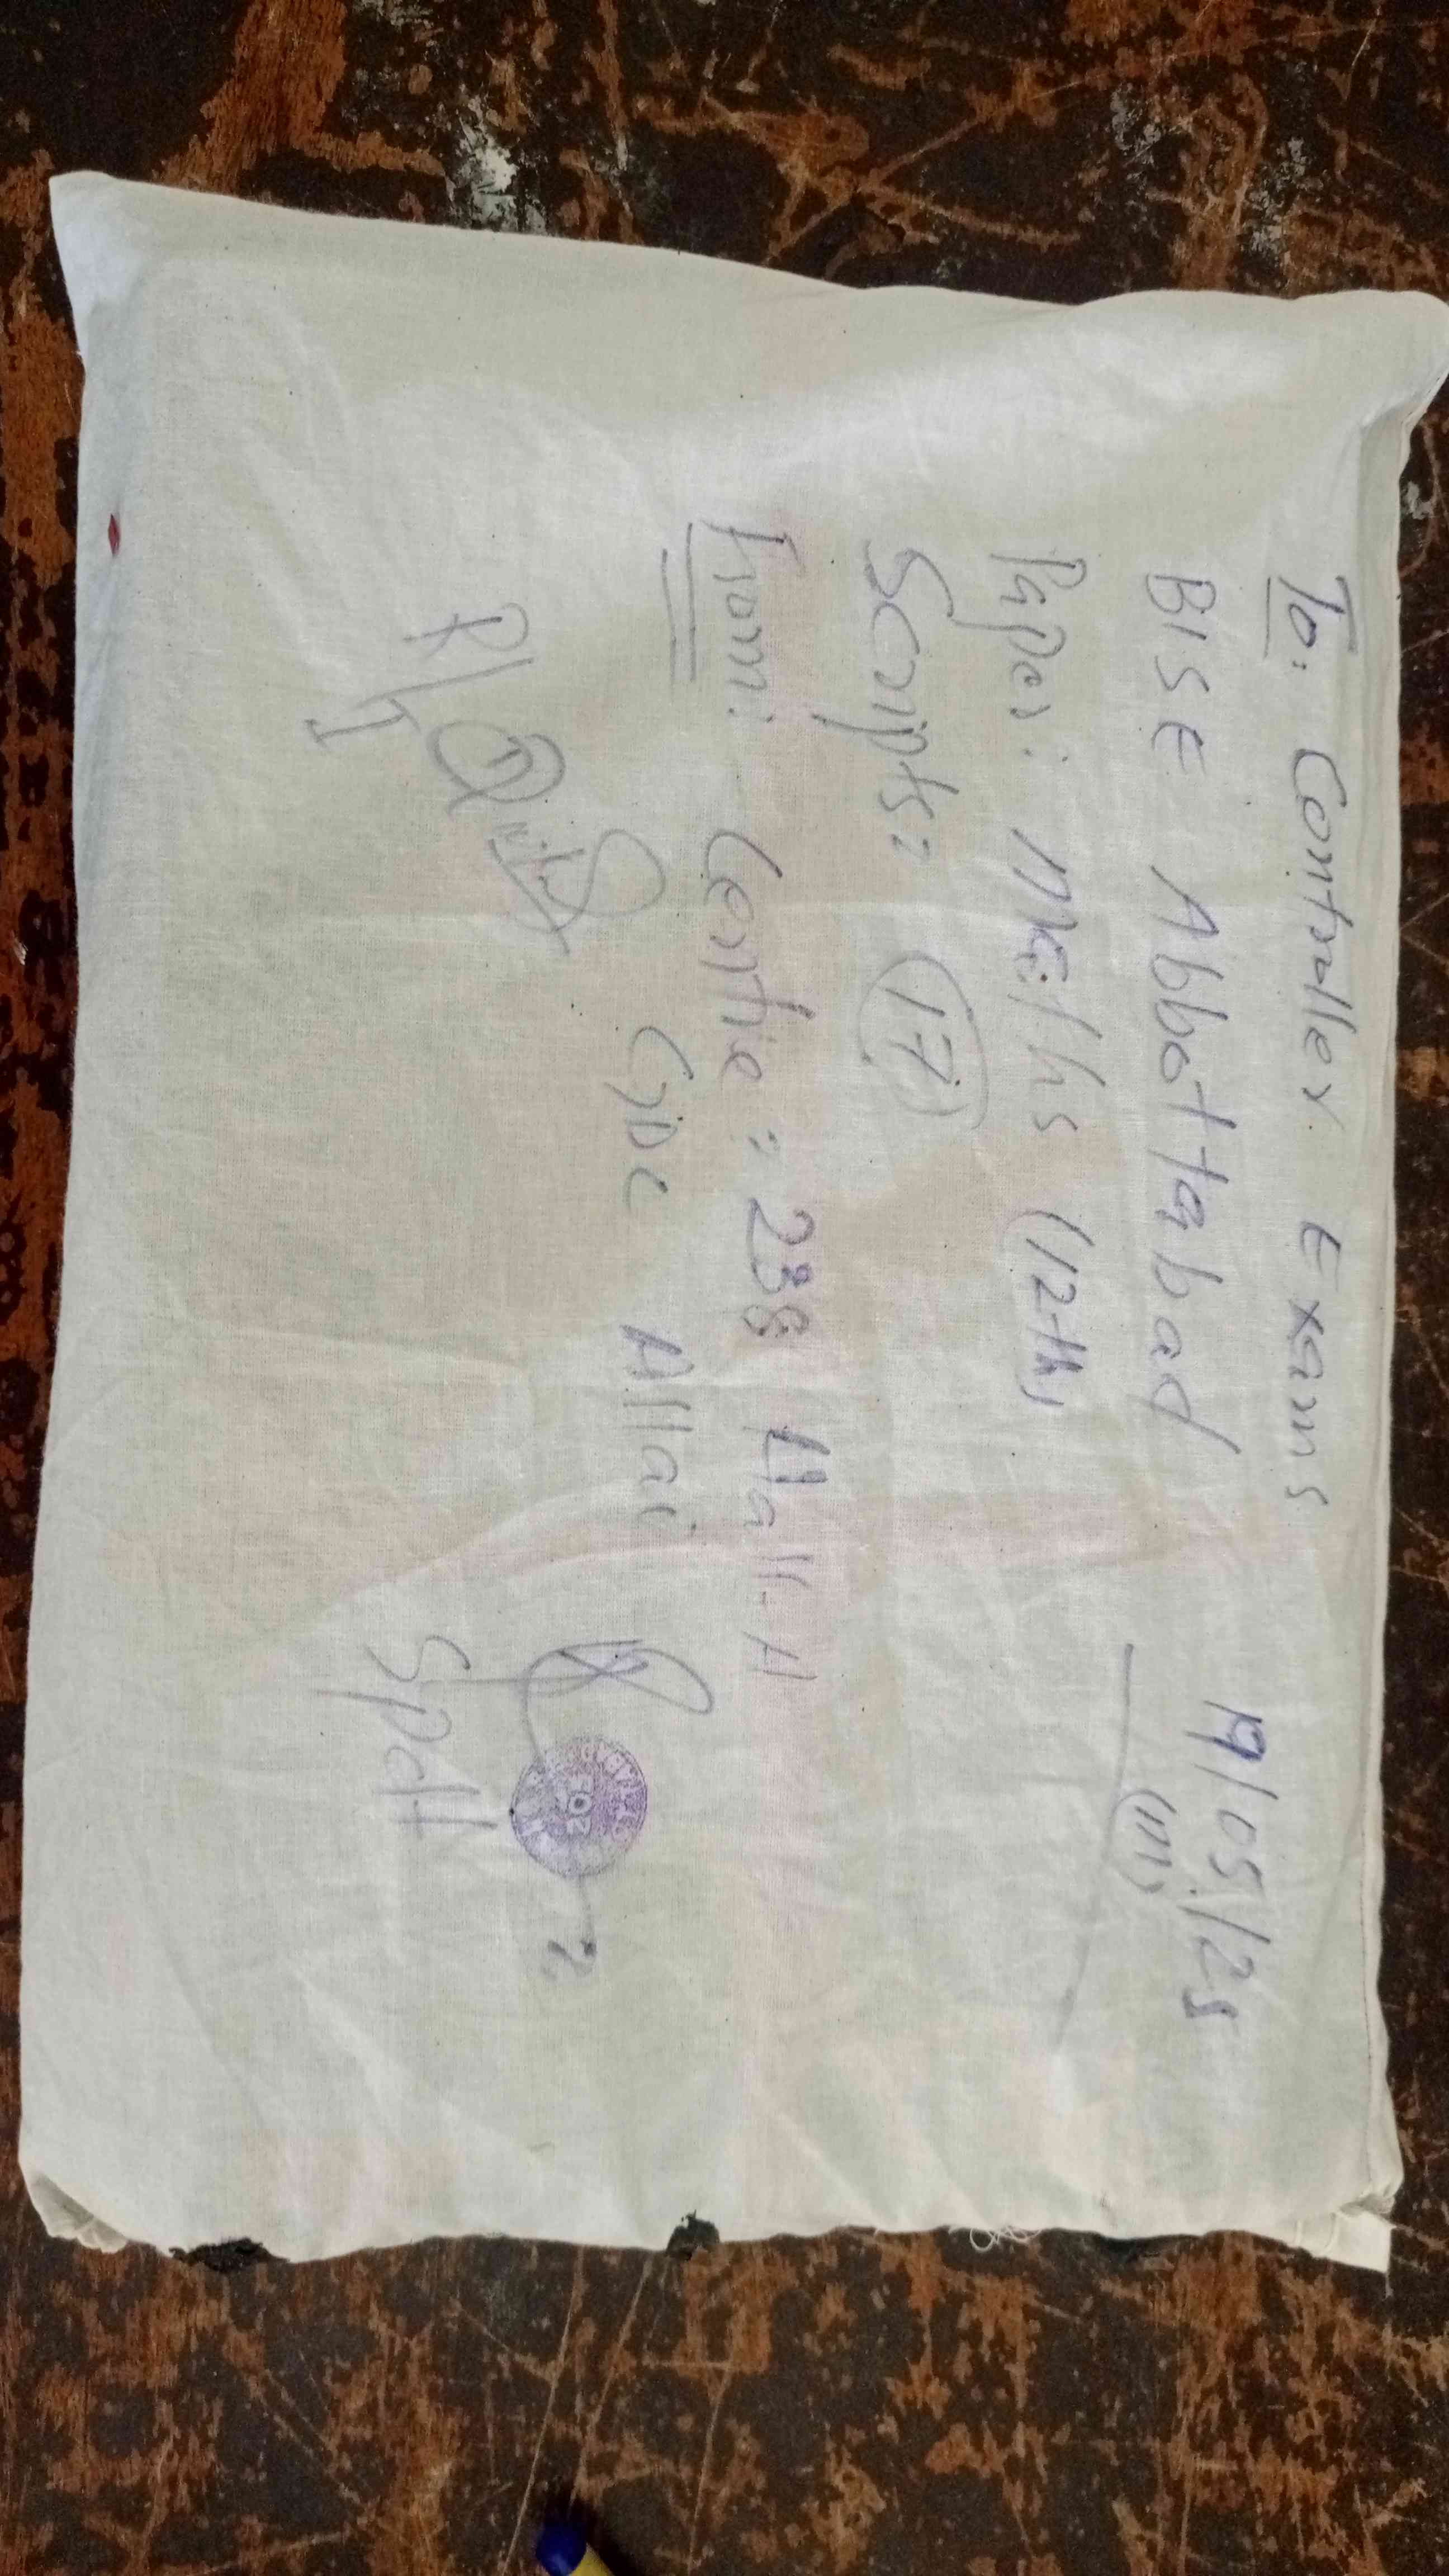 To: Controller Exams
19/05/25
(M)
BISE Abbottabad
Paper: Maths (12th)
Scripts: (17)
From: Centre = 238 Hall-A
GDC Allai
R/I
Spdtt